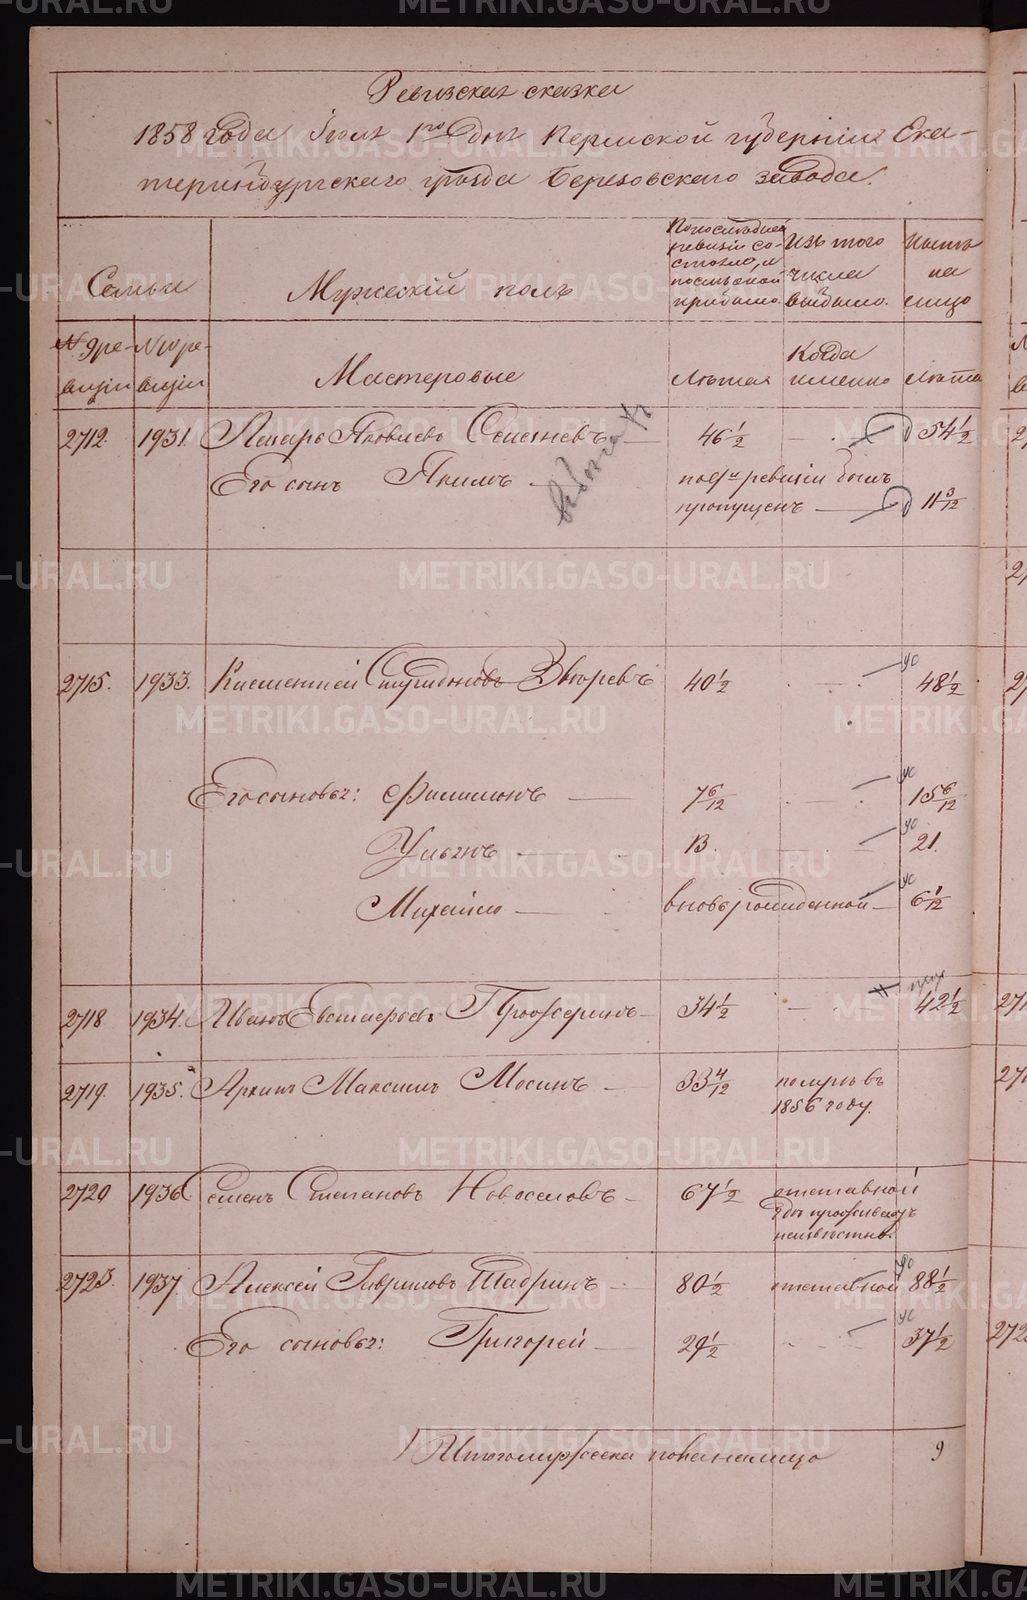 Ревизская сказка
1858 года Iюля 1го дня Пермской губернiи Ека-
теринбургскаго уѣзда Березовскаго завода.
Семьи
Мужескiй полъ
По последней
ревизiи со-
стояло, и
после оной
прибыло
Изъ того
числа
выбыло.
на
лицо
N 9 ре-
визiи
N 10 ре-
визiи
Мастеровые
Лѣта
Когда
именно
Лѣта
2712. 1931. Лазарь Яковлевъ 46½ 54½
Его сынъ Якимъ по 9й ревизiи былъ
пропущенъ 11 3/12
2715. 1933. Климентiй Спиридоновъ Звѣревъ 40½ 48½
Его сыновья: Филимонъ 7 6/12 15 6/12
Ульянъ 13. 21.
Михайло вновьрожденной 6 1/12
2718 1934. Иванъ Евстафьевъ 34½ 42½
2719. 1935. Архипъ Максимъ Мосинъ 33 4/12 померъ въ
1856 году.
2720 1936 Семенъ Степановъ Новоселовъ 67½ отставной
гдѣ проживаетъ
неизвѣстно.
2723. 1937. Алексей Гавриловъ Шабринъ 80½ отставной 88½
Его сыновья: Григорей 29½ 37½
Итого мужеска пола на лицо 9
METRIKI.GASO-URAL.RU